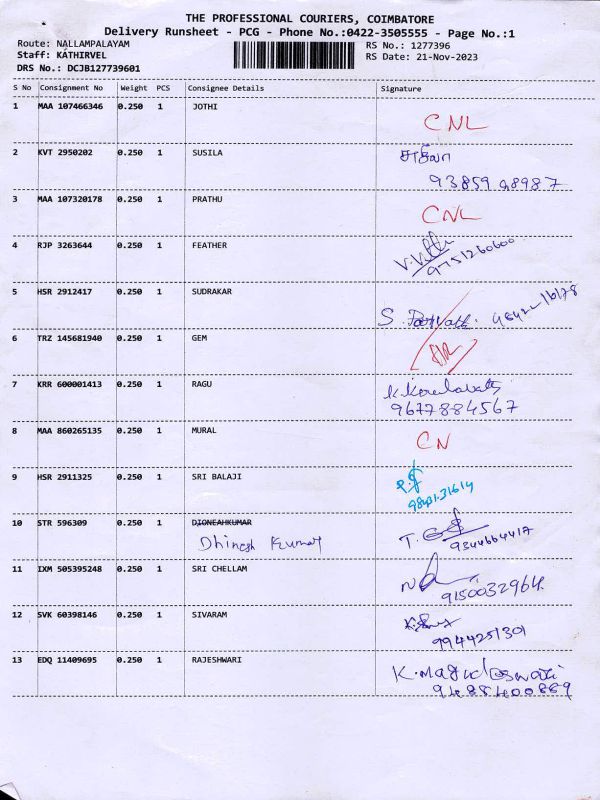 THE PROFESSIONAL COURIERS, COIMBATORE
Delivery Runsheet - PCG - Phone No.:0422-3505555 - Page No.:1
Route: NALLAMPALAYAM RS No.: 1277396
Staff: KATHIRVEL RS Date: 21-Nov-2023
DRS No.: DCJB127739601
S No Consignment No Weight PCS Consignee Details Signature
1 MAA 107466346 0.250 1 JOTHI
CNL
2 KVT 2950202 0.250 1 SUSILA
93859 98987
3 MAA 107320178 0.250 1 PRATHU
CNL
4 RJP 3263644 0.250 1 FEATHER
9751260600
5 HSR 2912417 0.250 1 SUDRAKAR
S.
6 TRZ 145681940 0.250 1 GEM
7 KRR 600001413 0.250 1 RAGU
9677884567
8 MAA 860265135 0.250 1 MURAL
CN
9 HSR 2911325 0.250 1 SRI BALAJI
10 STR 596309 0.250 1 DIONEAHKUMAR
Dhinesh Kumar
9344664417
11 IXM 505395248 0.250 1 SRI CHELLAM
9150032964
12 SVK 60398146 0.250 1 SIVARAM
9944251301
13 EDQ 11409695 0.250 1 RAJESHWARI
9488400889